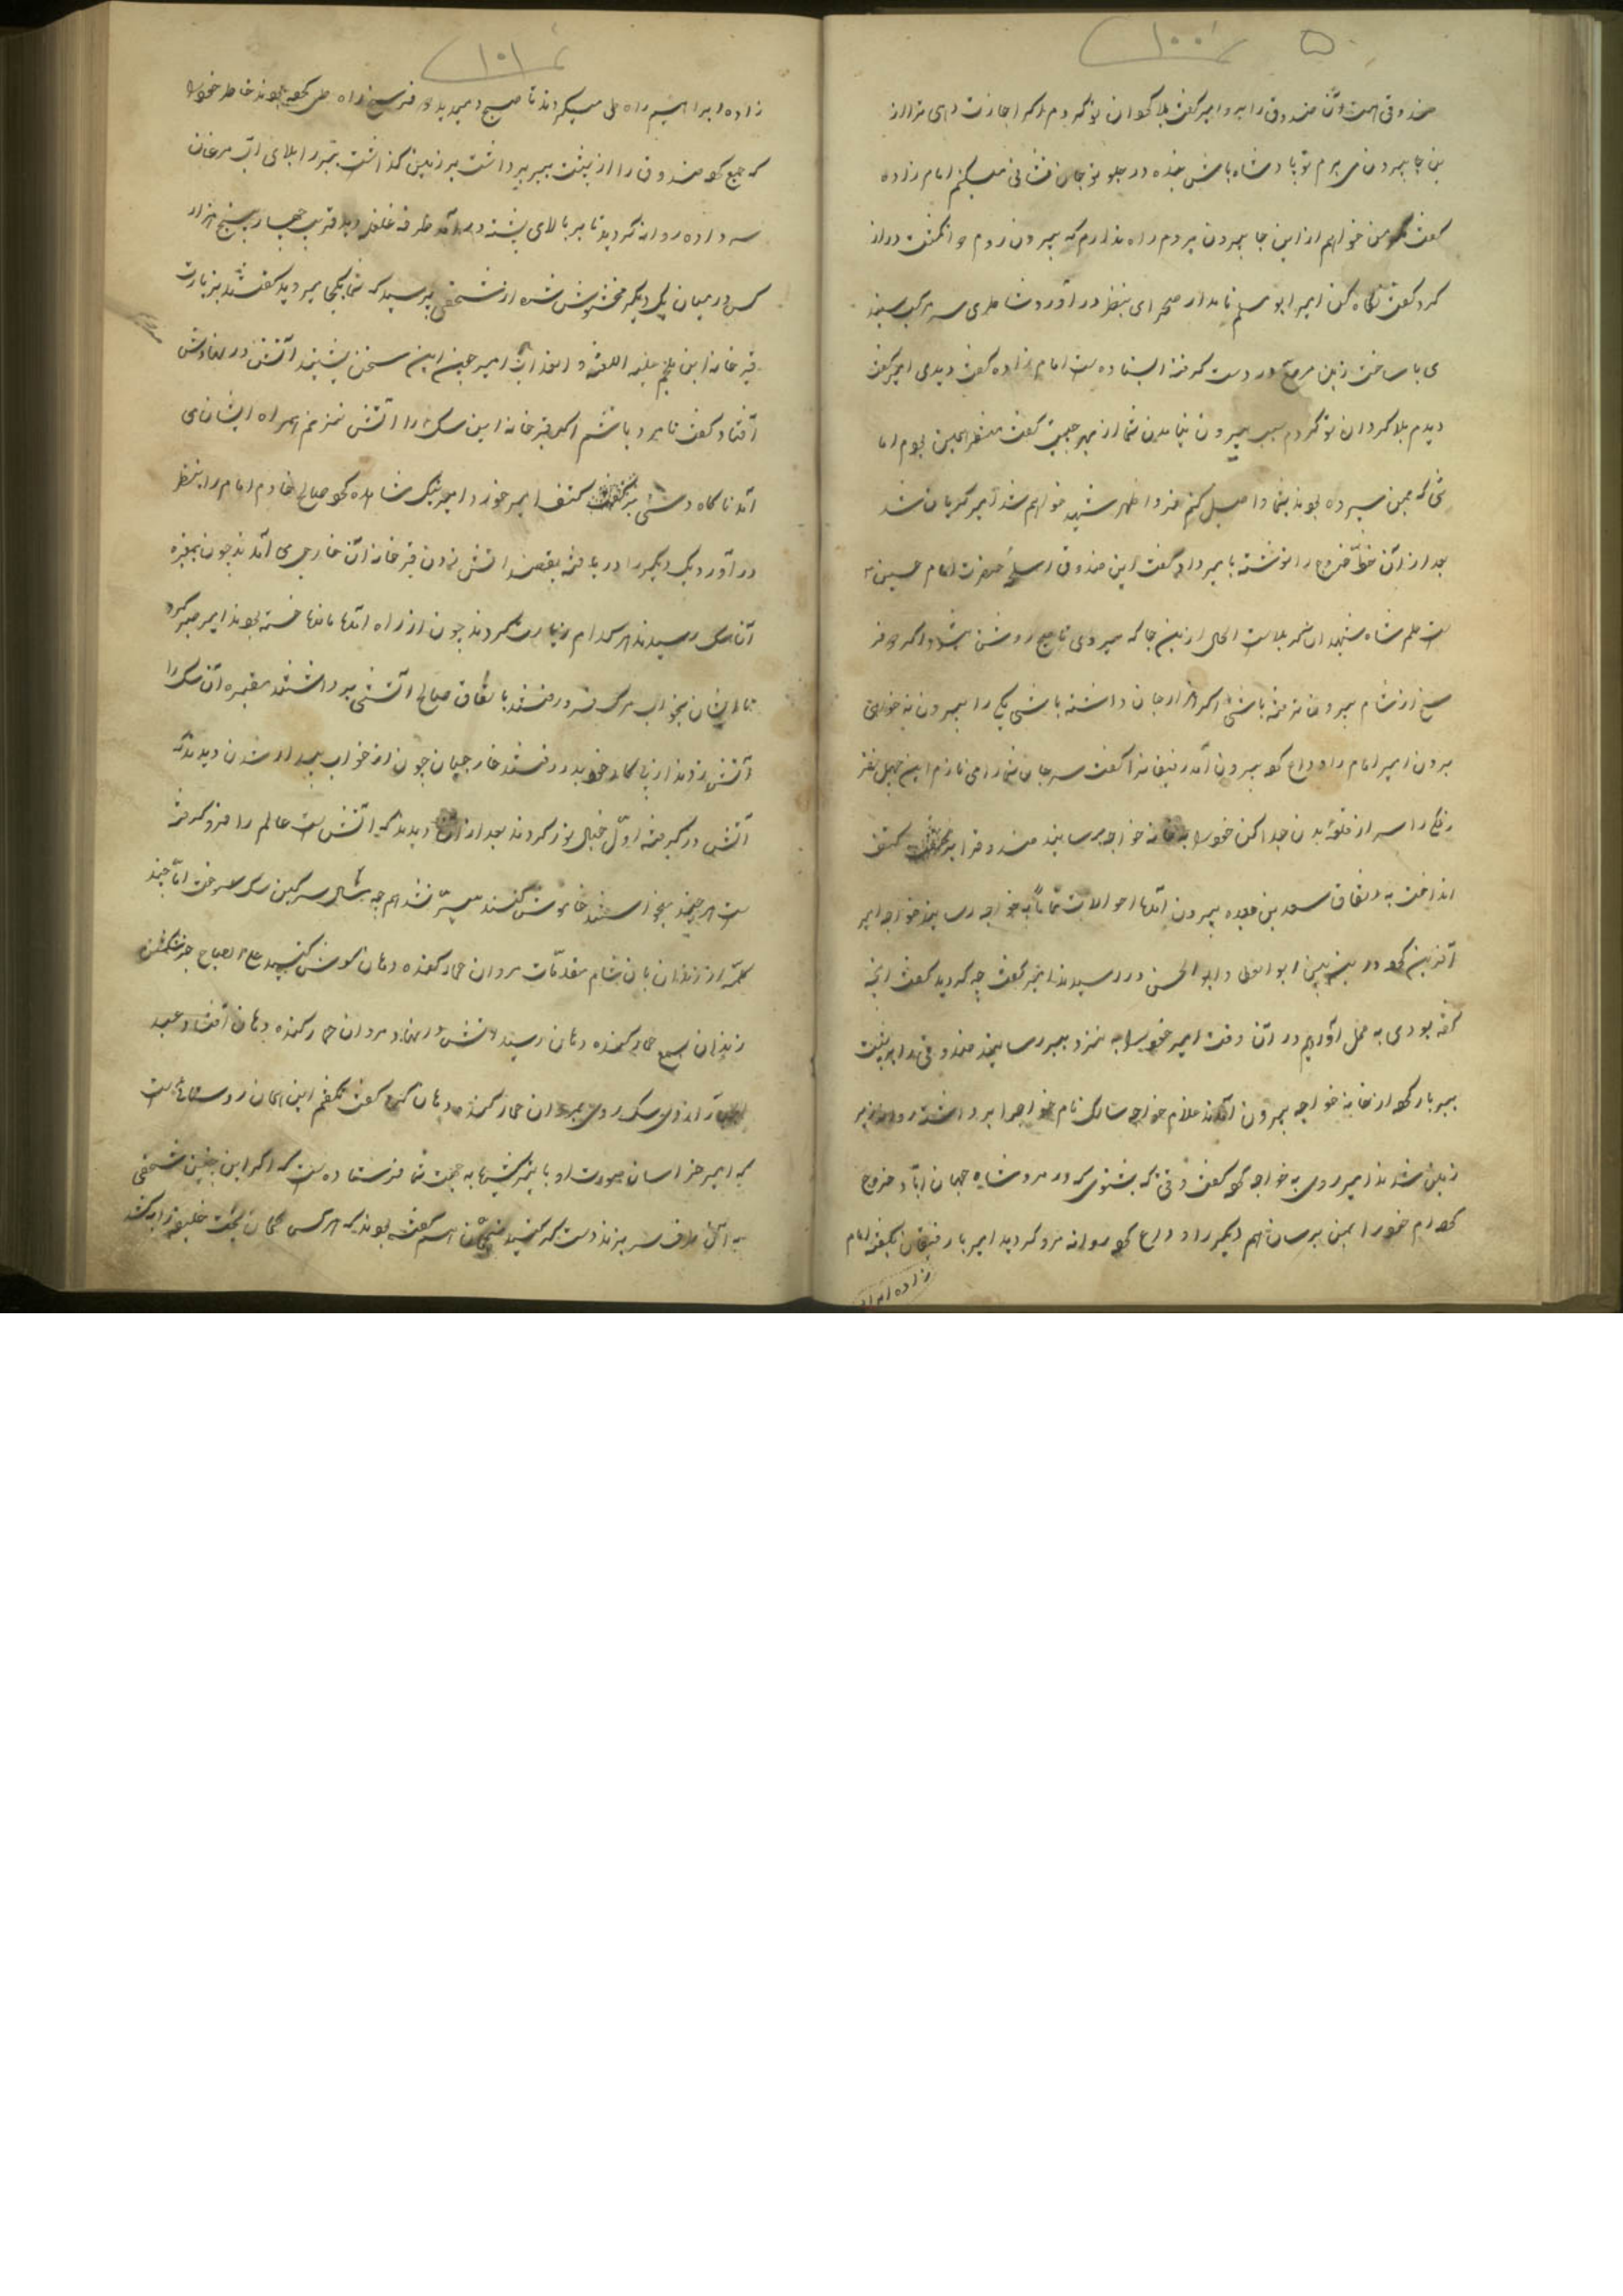 ۱۰۰
صندوقی هست آن صندوق را بیرو امیر گفت بلا گردان تو گردم اگر اجازت دهی ترا از
ین جا بیرون می برم تو پادشاه باش بنده در جلو تو جان فشانی میکنم امام زاده
گفت من خواهم ازاین جا بیرون بروم راه ندارم که بیرون روم و انگشت دراز
کرد گفت نگاه کن امیر ابومسلم نامدار صحرای بنظر در آورد شاطری سه مرکب سفید
ی با ساخت زین مرصع در دست گرفته ایستاده است امام زاده گفت دیدی امیر گفت
دیدم بلا گردان تو گردم سبب بیرون نیامدن شما از بهر چیست گفت منتظر همین بودم اما
نتی که بمن سپرده بودند بشما واصل کنم فردا ظهر شهید خواهم شد امیر گریان شد
بعد از آن خط خروج را نوشته با میر داد گفت این صندوق اسلحهٔ حضرت امام حسین
ست علم شاه شهیدان کربلاست الحال ازین جا که میروی تا صبح روشن بشود اگر دو فر
سخ از شام بیرون رفته باشی اگر هزار جان داشته باشی یکی را بیرون نخواهی
برون امیر امام را وداع کرد بیرون آمد رفیقانرا گفت سر جان شما را می نازم این چهل نفر
زنگی را سر از قلعهٔ بدن جدا کن خود را به خانه خواجه برسانید صندوق را بر کتف
انداخت به اتفاق سعد بن عبیده بیرون آمدند احوالات تماماً به خواجه رسانید خواجه امیر
آفرین کرد در بین ابوالعطا و ابوالحسن در رسیدند امیر گفت چه کردید گفت آنچه
گفته بودی به عمل آوردیم در آن وقت امیر خود را به نزد ببیر رسانید صندوق را بر پشت
ببیر بار کرد از خانه خواجه بیرون آمدند غلام خواجه سالک نام خواجه را برداشت روانه
زمین شدند امیر روی به خواجه کرد گفت وقتی که بشنوی که در مرو شاه جهان آباد خروج
کردم خود را بمن برسان هم دیگر را وداع کرد روانه مرو گردید امیر با رفیقان بگفته امام
زاده ابرا
۱۰۱
زاده ابراهیم راه طی میکردند تا صبح دمید دو فرسخ راه طی کرده بودند خاطر خود را
که جمع کرد صندوق را از پشت ببیر برداشت بر زمین گذاشت ببیر را بلای آب مرغان
سر داده روانه گردید تا بر بالای پشته در آمد طرفه غلغله دید قریب چهار پنج هزار
کس در میان یک دیگر مخشوش شده از شخصی پرسید که شما بکجا میروید گفتند بزیارت
قبر خانه ابن ملجم علیه اللعنة و العذاب امیر چون این سخن بشنید آتش در نهادش
افتاد گفت نامرد باشم اگر قبر خانه این سگ را آتش نزنم همراه ایشان می
آمد ناگاه دستی بر کتف امیر خورد امیر نیک مشاهده کرد صالح خادم امام را بنظر
در آورد یک دیگر را در یافته بقصد آتش زدن قبر خانه آن خارجی می آمدند چون بمقبره
آن سگ رسیدند هر کدام زیارت کردند چون از راه آمدها ماندها خسته بودند امیر صبر کرد
تا ایشان بخواب مرگ فرو رفتند باتفاق صالح آتشی برداشتند مقبره آن سگ را
آتش زدند از پی کار خود بدر رفتند خارجیان چون از خواب بیدار شدن دیدند که
آتش در گرفته اول خیال نور کردند بعد از آن دیدند که آتش ست عالم را فرو گرفته
ست هر چند خواستند خاموش کنند میسر نشد هم چه مثال سرگین سگ سوخت اما چند
کلمه از زندان بان شام مقدمات مروان حمار کنده دهان گوش کنید علی الصباح خبر شکستن
زندان بسمع حمار کنده دهان رسید آتش در نهاد مروان حمار کنده دهان افتاد عبد
الجبار ازدی سگ روی بمروان حمار کنده دهان کرد گفت نگفتم این همان روستائی ست
که امیر خراسان صورت او با تبر کشیده به جهت شما فرستاده ست که اگر این چنین شخصی
به آن طرف سر بزند دست گیر کنید منجمان هم گفته بودند که هر کس گمان